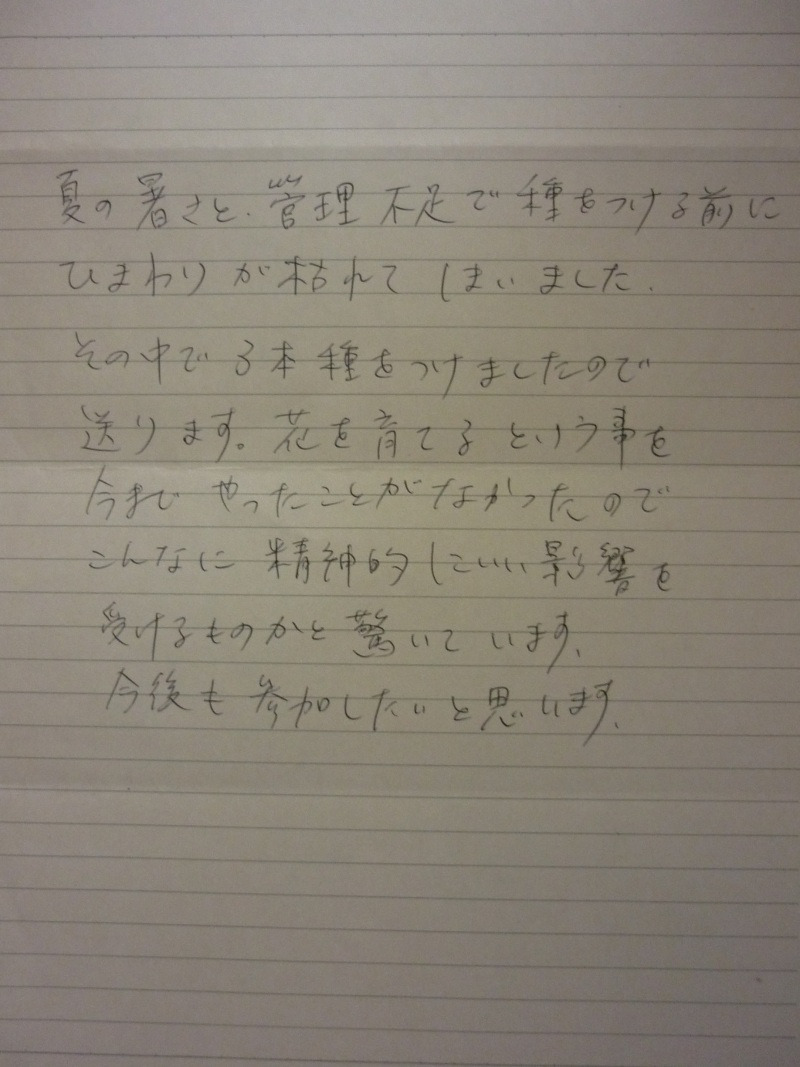 夏の暑さと、管理不足で種をつける前に
ひまわりが枯れてしまいました。
その中で3本種をつけましたので
送ります。花を育てるという事を
今までやったことがなかったので
こんなに精神的にいい影響を
受けるものかと驚いています、
今後も参加したいと思います、